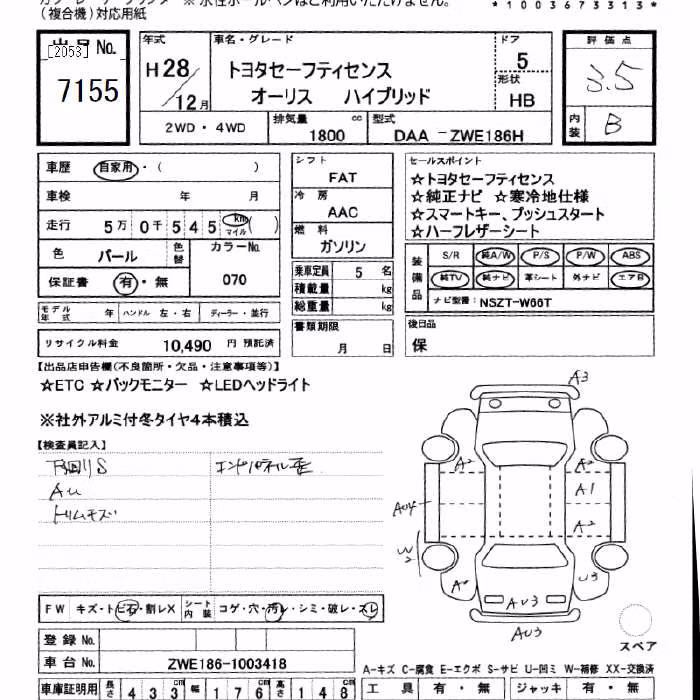 (複合機)対応用紙
*1003673313*
出品No.
[2053]
7155
年式
H28/12月
車名・グレード
トヨタセーフティセンス
オーリス ハイブリッド
ドア
5
形状
HB
評価点
3.5
内装
B
2WD・4WD
排気量
1800 cc
型式
DAA-ZWE186H
車歴 自家用・( )
車検 年 月
走行 5万0千545 km マイル( )
色 パール 色替 カラーNo. 070
保証書 有・無
モデル年式 年 ハンドル 左・右 ディーラー・並行
リサイクル料金 10,490 円 預託済
シフト
FAT
冷房
AAC
燃料
ガソリン
乗車定員 5 名
積載量 kg
総重量 kg
書類期限
月 日
セールスポイント
☆トヨタセーフティセンス
☆純正ナビ ☆寒冷地仕様
☆スマートキー、プッシュスタート
☆ハーフレザーシート
装備品
S/R 純A/W P/S P/W ABS
純TV 純ナビ 革シート 外ナビ エアB
ナビ型番: NSZT-W66T
後日品
保
【出品店申告欄(不良箇所・欠品・注意事項等)】
☆ETC ☆バックモニター ☆LEDヘッドライト
※社外アルミ付冬タイヤ4本積込
【検査員記入】
下回りS
エンドパネル歪
AU
トリムキズ
A3
A2
A1
AU4
A2
W2
U3
AU3
AU3
スペア
FW キズ・トビ石・割レX シート内装 コゲ・穴・汚レ・シミ・破レ・スレ
登録No.
車台No. ZWE186-1003418
A-キズ C-腐食 E-エクボ S-サビ U-凹ミ W-補修 XX-交換済
車庫証明用 長さ 433cm 幅 176cm 高さ 148cm
工具 有・無 ジャッキ 有・無